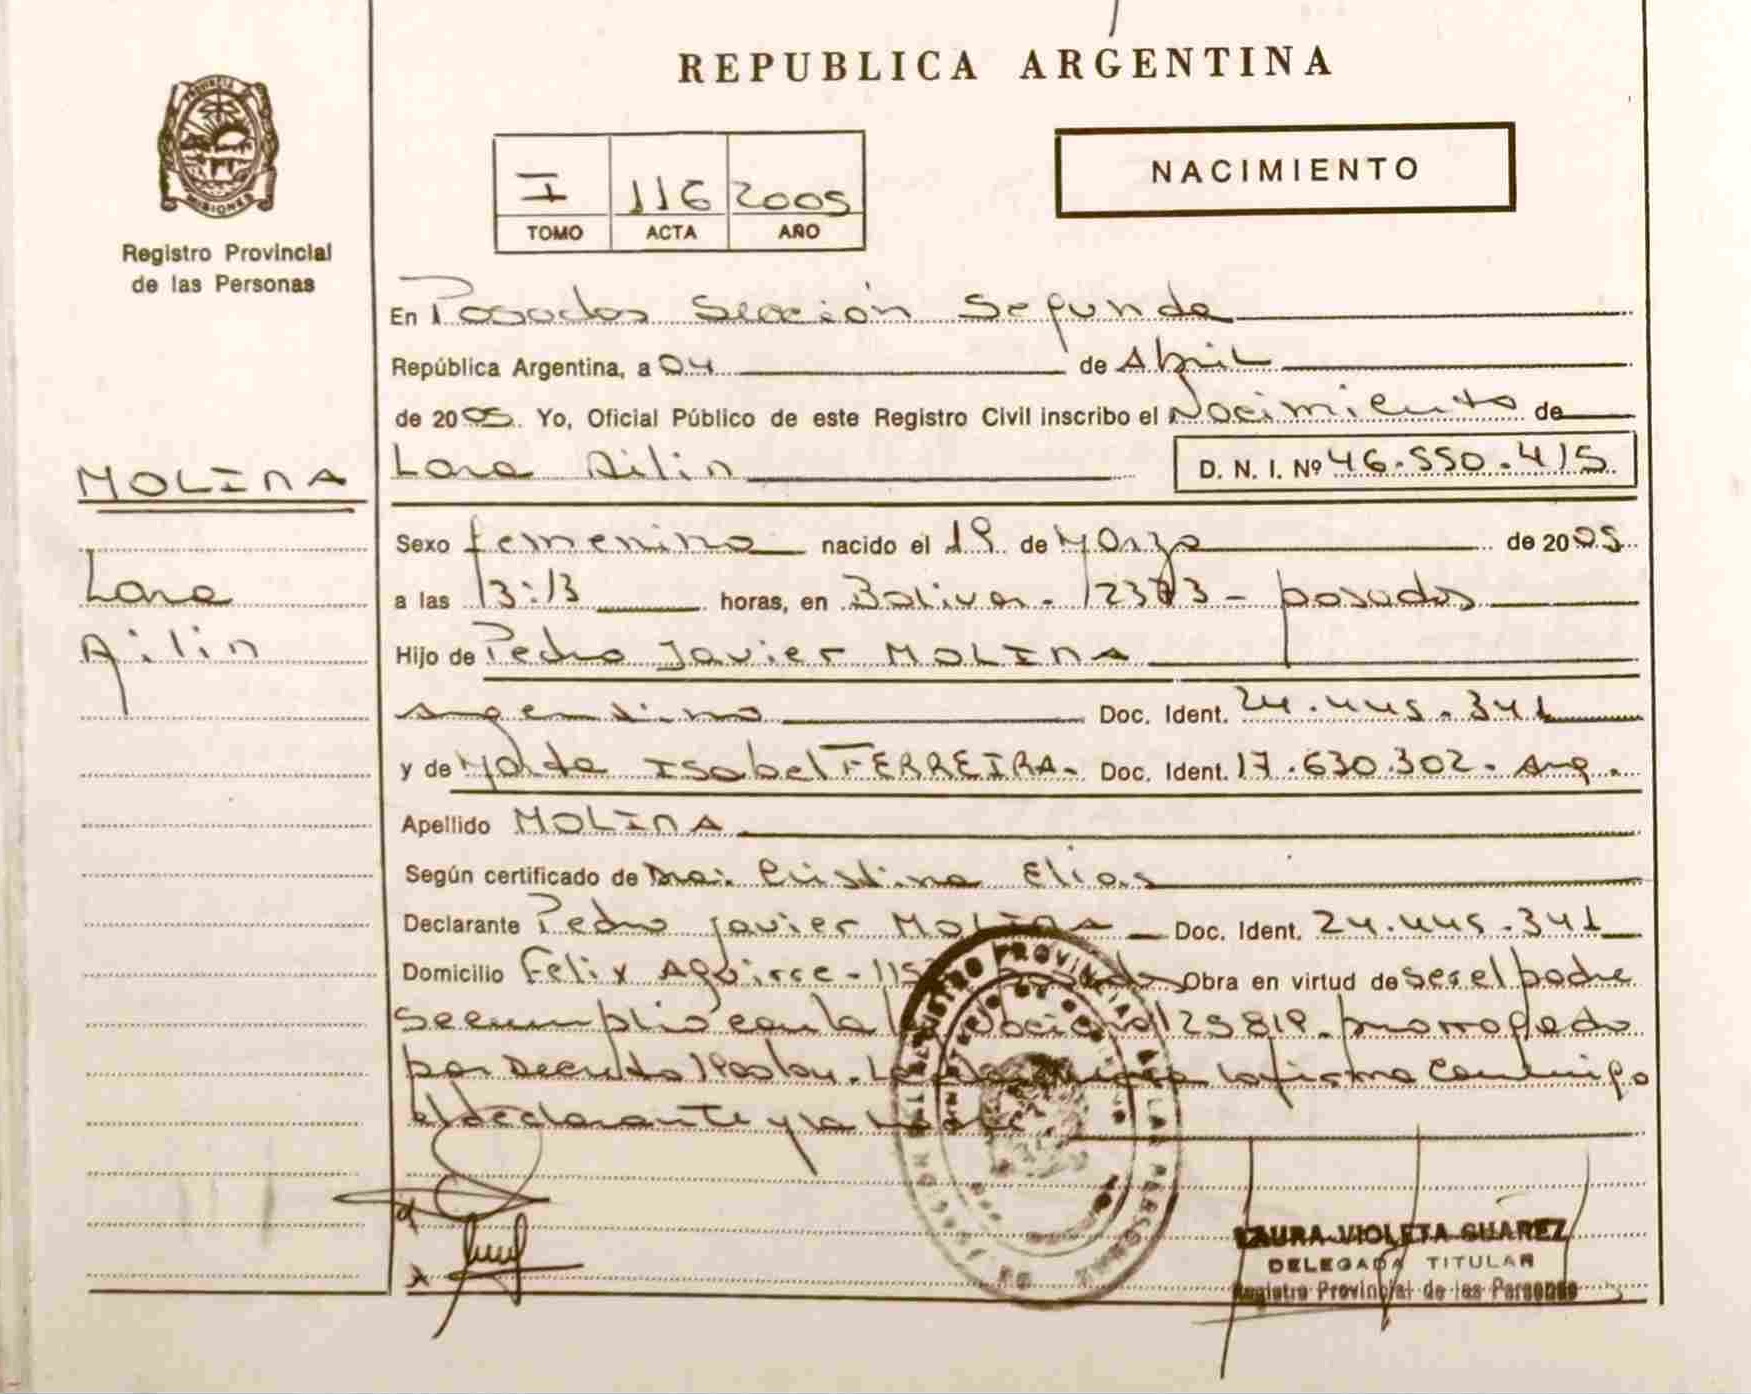 REPUBLICA ARGENTINA
PROVINCIA DE
MISIONES
Registro Provincial
de las Personas
I 116 2005
TOMO ACTA AÑO
NACIMIENTO
En Posadas Sección Segunda
República Argentina, a 04 de Abril
de 2005. Yo, Oficial Público de este Registro Civil inscribo el Nacimiento de
MOLINA
Lara Ailin D. N. I. Nº 46.550.415
Sexo femenino nacido el 19 de Marzo de 2005
Lara
a las 13:13 horas, en Bolivar - 2373 - posadas
Ailin
Hijo de Pedro Javier MOLINA
argentino Doc. Ident. 24.445.341
y de Isabel FERREIRA - Doc. Ident. 17.630.302 - Arg.
Apellido MOLINA
Según certificado de Dra. Cristina Elias
Declarante Pedro Javier MOLINA Doc. Ident. 24.445.341
Domicilio Felix Aguirre - Obra en virtud de ser el padre
se cumplió con la prorrogado
por Decreto la firma conmigo
el declarante y la
REGISTRO PROVINCIAL DE LAS PERSONAS
LAURA VIOLETA SUAREZ
DELEGADA TITULAR
Registro Provincial de las Personas